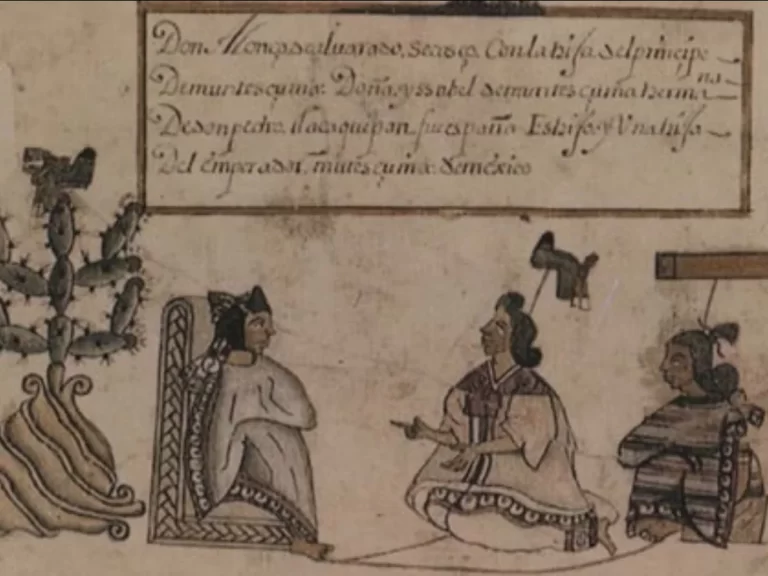 Don Alonço de aluarado. se casó. Con la hija del principe
Demuntesçuma. Doña yssabel de muntesçuma herma na
De don pedro tlacaquepan. fue españa. Es hijo y Vna hija
Del emperador mutescuma de mexico